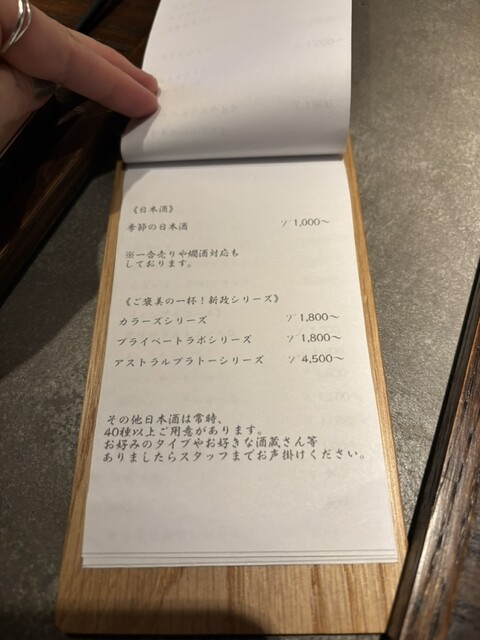 《日本酒》
季節の日本酒 ソ 1,000〜
※一合売りや燗酒対応も
しております。
《ご褒美の一杯！新政シリーズ》
カラーズシリーズ ソ 1,800〜
プライベートラボシリーズ ソ 1,800〜
アストラルプラトーシリーズ ソ 4,500〜
その他日本酒は常時、
40種以上ご用意があります。
お好みのタイプやお好きな酒蔵さん等
ありましたらスタッフまでお声掛けください。